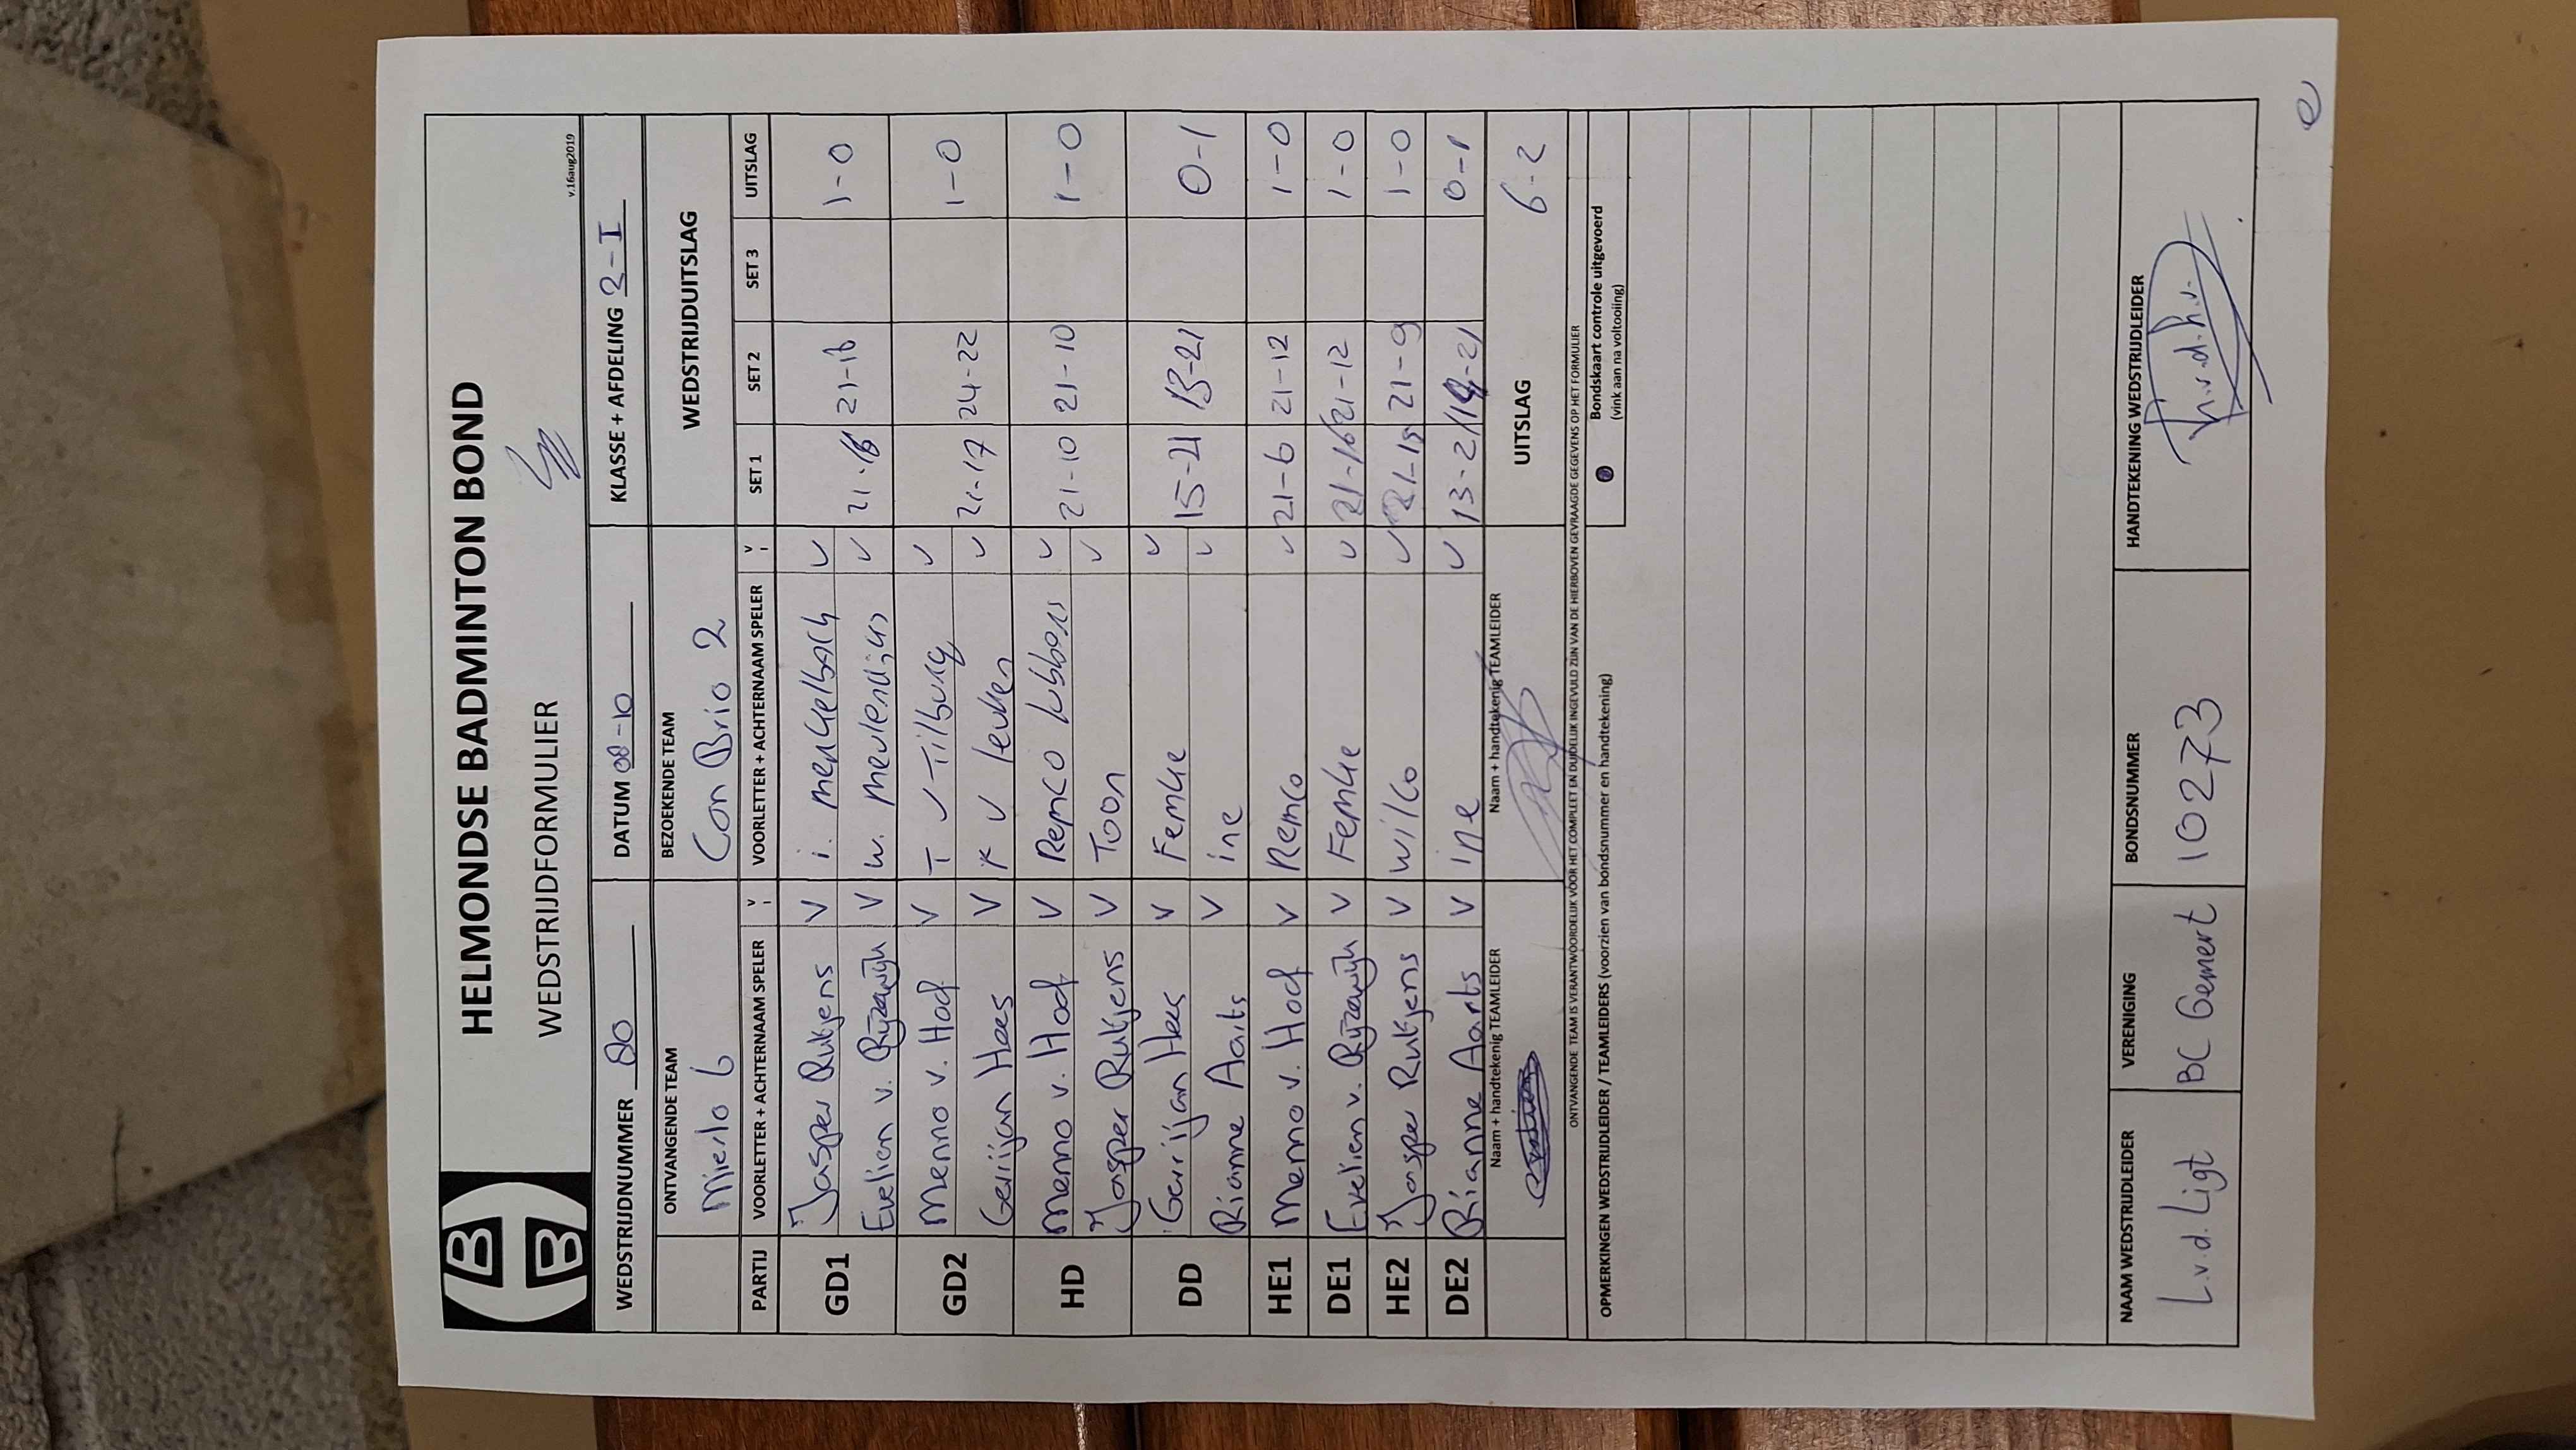 HELMONDSE BADMINTON BOND
WEDSTRIJDFORMULIER
v.16aug2019
WEDSTRIJDNUMMER 80 DATUM 08-10 KLASSE + AFDELING 2-I
ONTVANGENDE TEAM BEZOEKENDE TEAM WEDSTRIJDUITSLAG
Mierlo 6 Con Brio 2
PARTIJ VOORLETTER + ACHTERNAAM SPELER V VOORLETTER + ACHTERNAAM SPELER V SET 1 SET 2 SET 3 UITSLAG
GD1 Jasper Rutjens V i. V 21-16 1-0
Evelien v. Rijzewijk V w. meulendijks V
GD2 Menno v. Hoof V T v Tilburg V 21-17 24-22 1-0
Gerrijan Hees V v leuken V
HD Menno v. Hoof V Remco lubbers V 21-10 21-10 1-0
Jasper Rutjens V Toon V
DD Gerrijan Hees V Femke V 15-21 13-21 0-1
Rianne Aarts V ine V
HE1 Menno v. Hoof V Remco V 21-6 21-12 1-0
DE1 Evelien v. Rijzewijk V Femke V 21-16 21-12 1-0
HE2 Jasper Rutjens V wilco V 21-9 1-0
DE2 Rianne Aarts V ine V 13-21 0-1
Naam + handtekenig TEAMLEIDER Naam + handtekenig TEAMLEIDER UITSLAG 6-2
ONTVANGENDE TEAM IS VERANTWOORDELIJK VOOR HET COMPLEET EN DUIDELIJK INGEVULD ZIJN VAN DE HIERBOVEN GEVRAAGDE GEGEVENS OP HET FORMULIER
OPMERKINGEN WEDSTRIJDLEIDER / TEAMLEIDERS (voorzien van bondsnummer en handtekening) Bondskaart controle uitgevoerd
(vink aan na voltooiing)
NAAM WEDSTRIJDLEIDER VERENIGING BONDSNUMMER HANDTEKENING WEDSTRIJDLEIDER
L.v.d. Ligt BC Gemert 10273